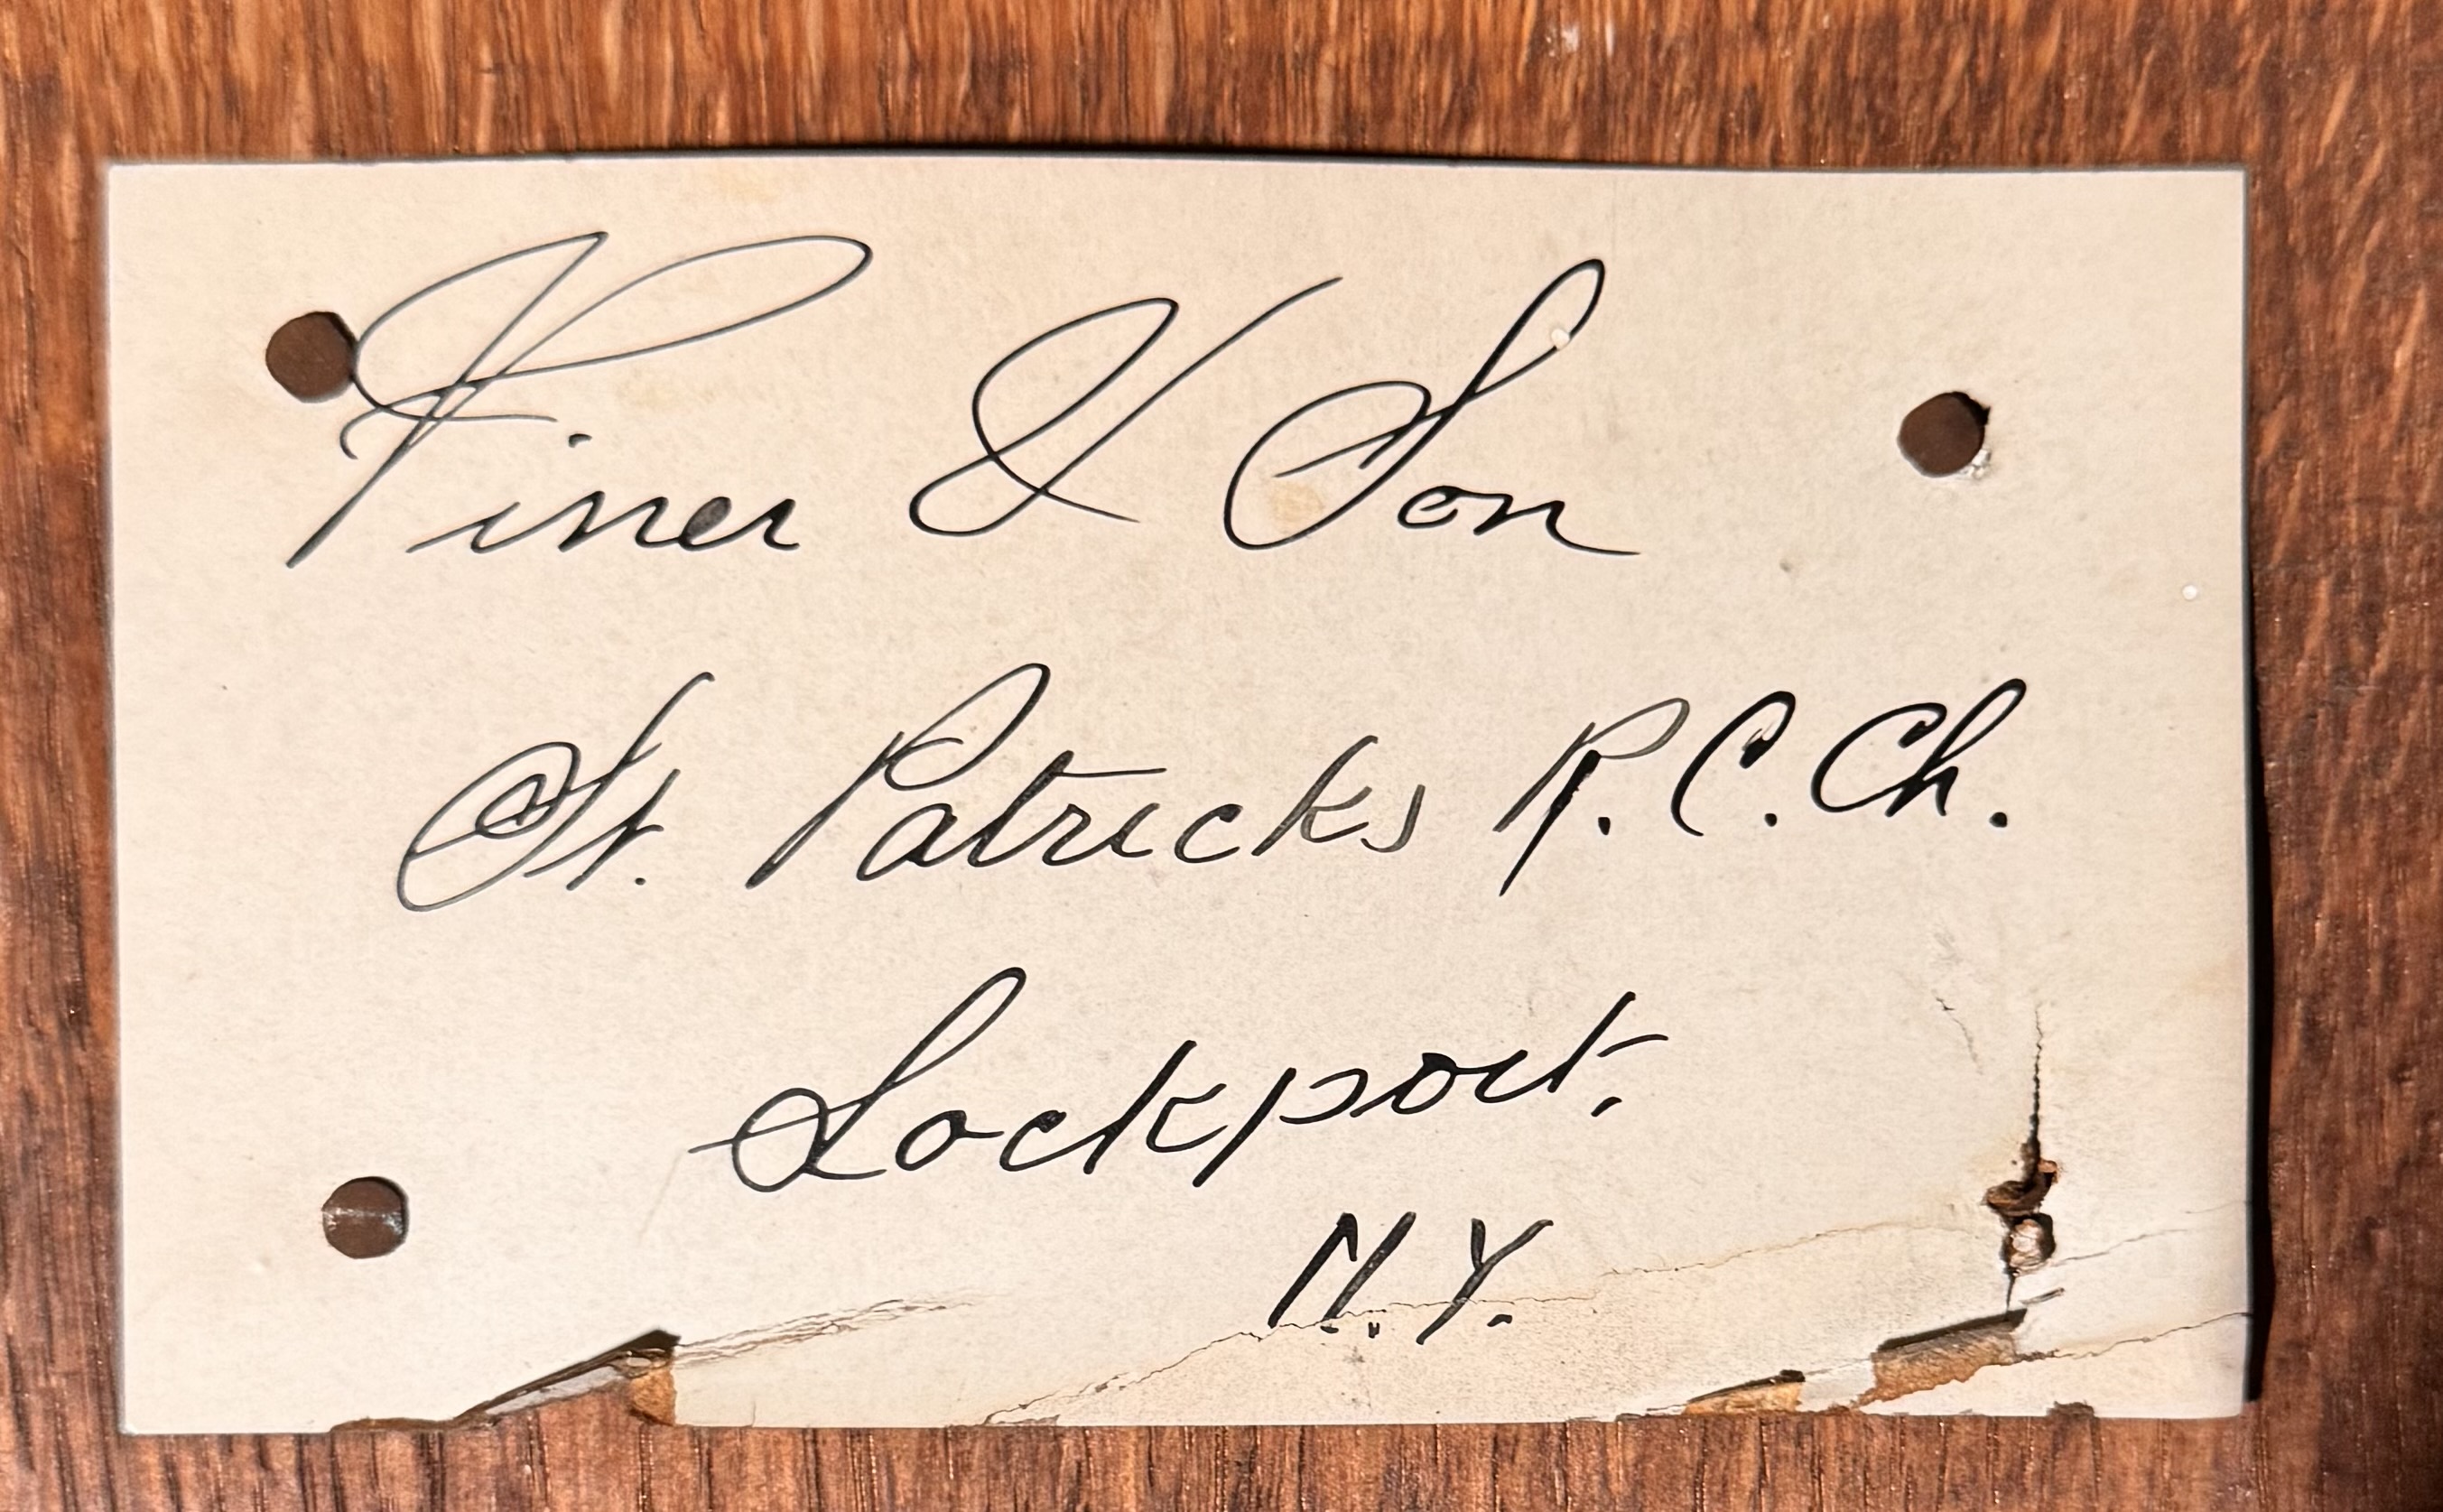 Viner & Son
St. Patricks R.C.Ch.
Lockport,
N.Y.